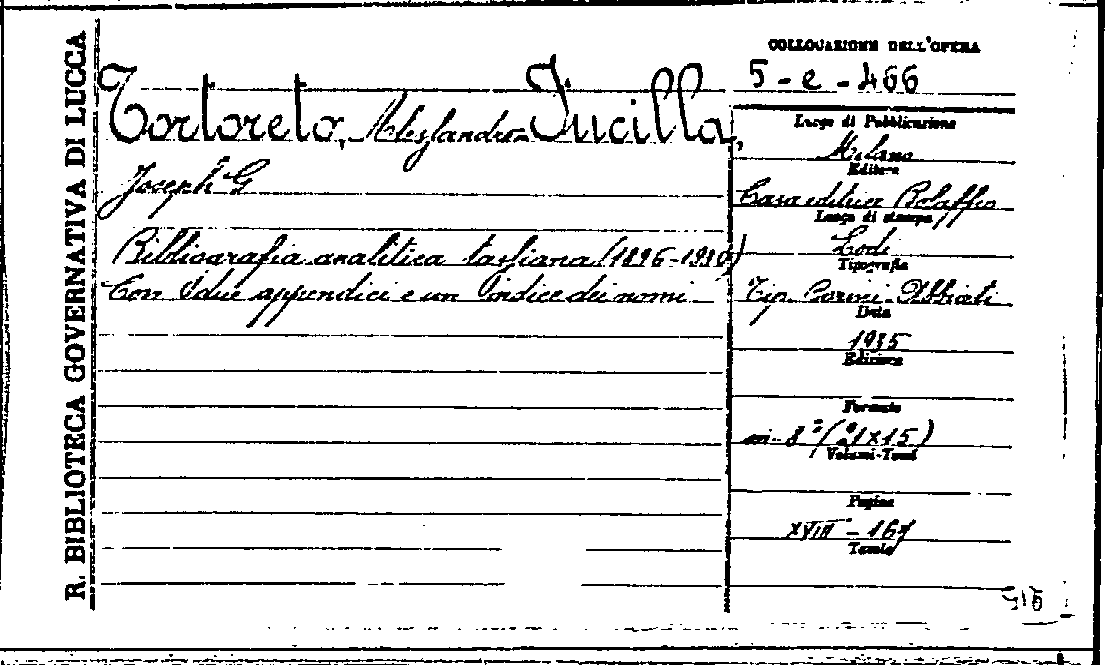 R. BIBLIOTECA GOVERNATIVA DI LUCCA
COLLOCAZIONE DELL'OPERA
5 - e - 466
Tortoreto, Alessandro - Fucilla,
Joseph G
Bibliografia analitica tassiana (1896-1930)
Con due appendici e un Indice dei nomi
Luogo di Pubblicazione
Milano
Editore
Casa editrice Bolaffio
Luogo di stampa
Lodi
Tipografia
Tip. Abbiati
Data
1935
Edizione
Formato
in-8° (21x15)
Volumi-Tomi
Pagine
XVIII - 167
Tavole